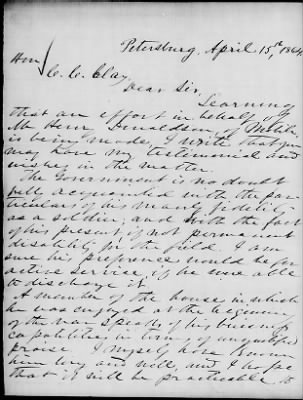 Petersburg, April 15th, 1864.
Hon
C. C. Clay,
Dear Sir,
Learning
that an effort in behalf of
Mr Henr Donaldson, of Mobile
is being made, I write that you
may have my testimonial and
wishes in the matter.
The Government is no doubt
full acquainted with the par-
ticulars of his
as a soldier; and with the fact
of his present if not permanent
disability for the field. I am
sure his preference would be for
active service, if he were able
to discharge it.
A member of the house in which
he was employed at the beginning
of the war speaks of his business
capabilities in terms of unqualified
praise. I myself have known
him long and well, and I hope
that it will be practicable to